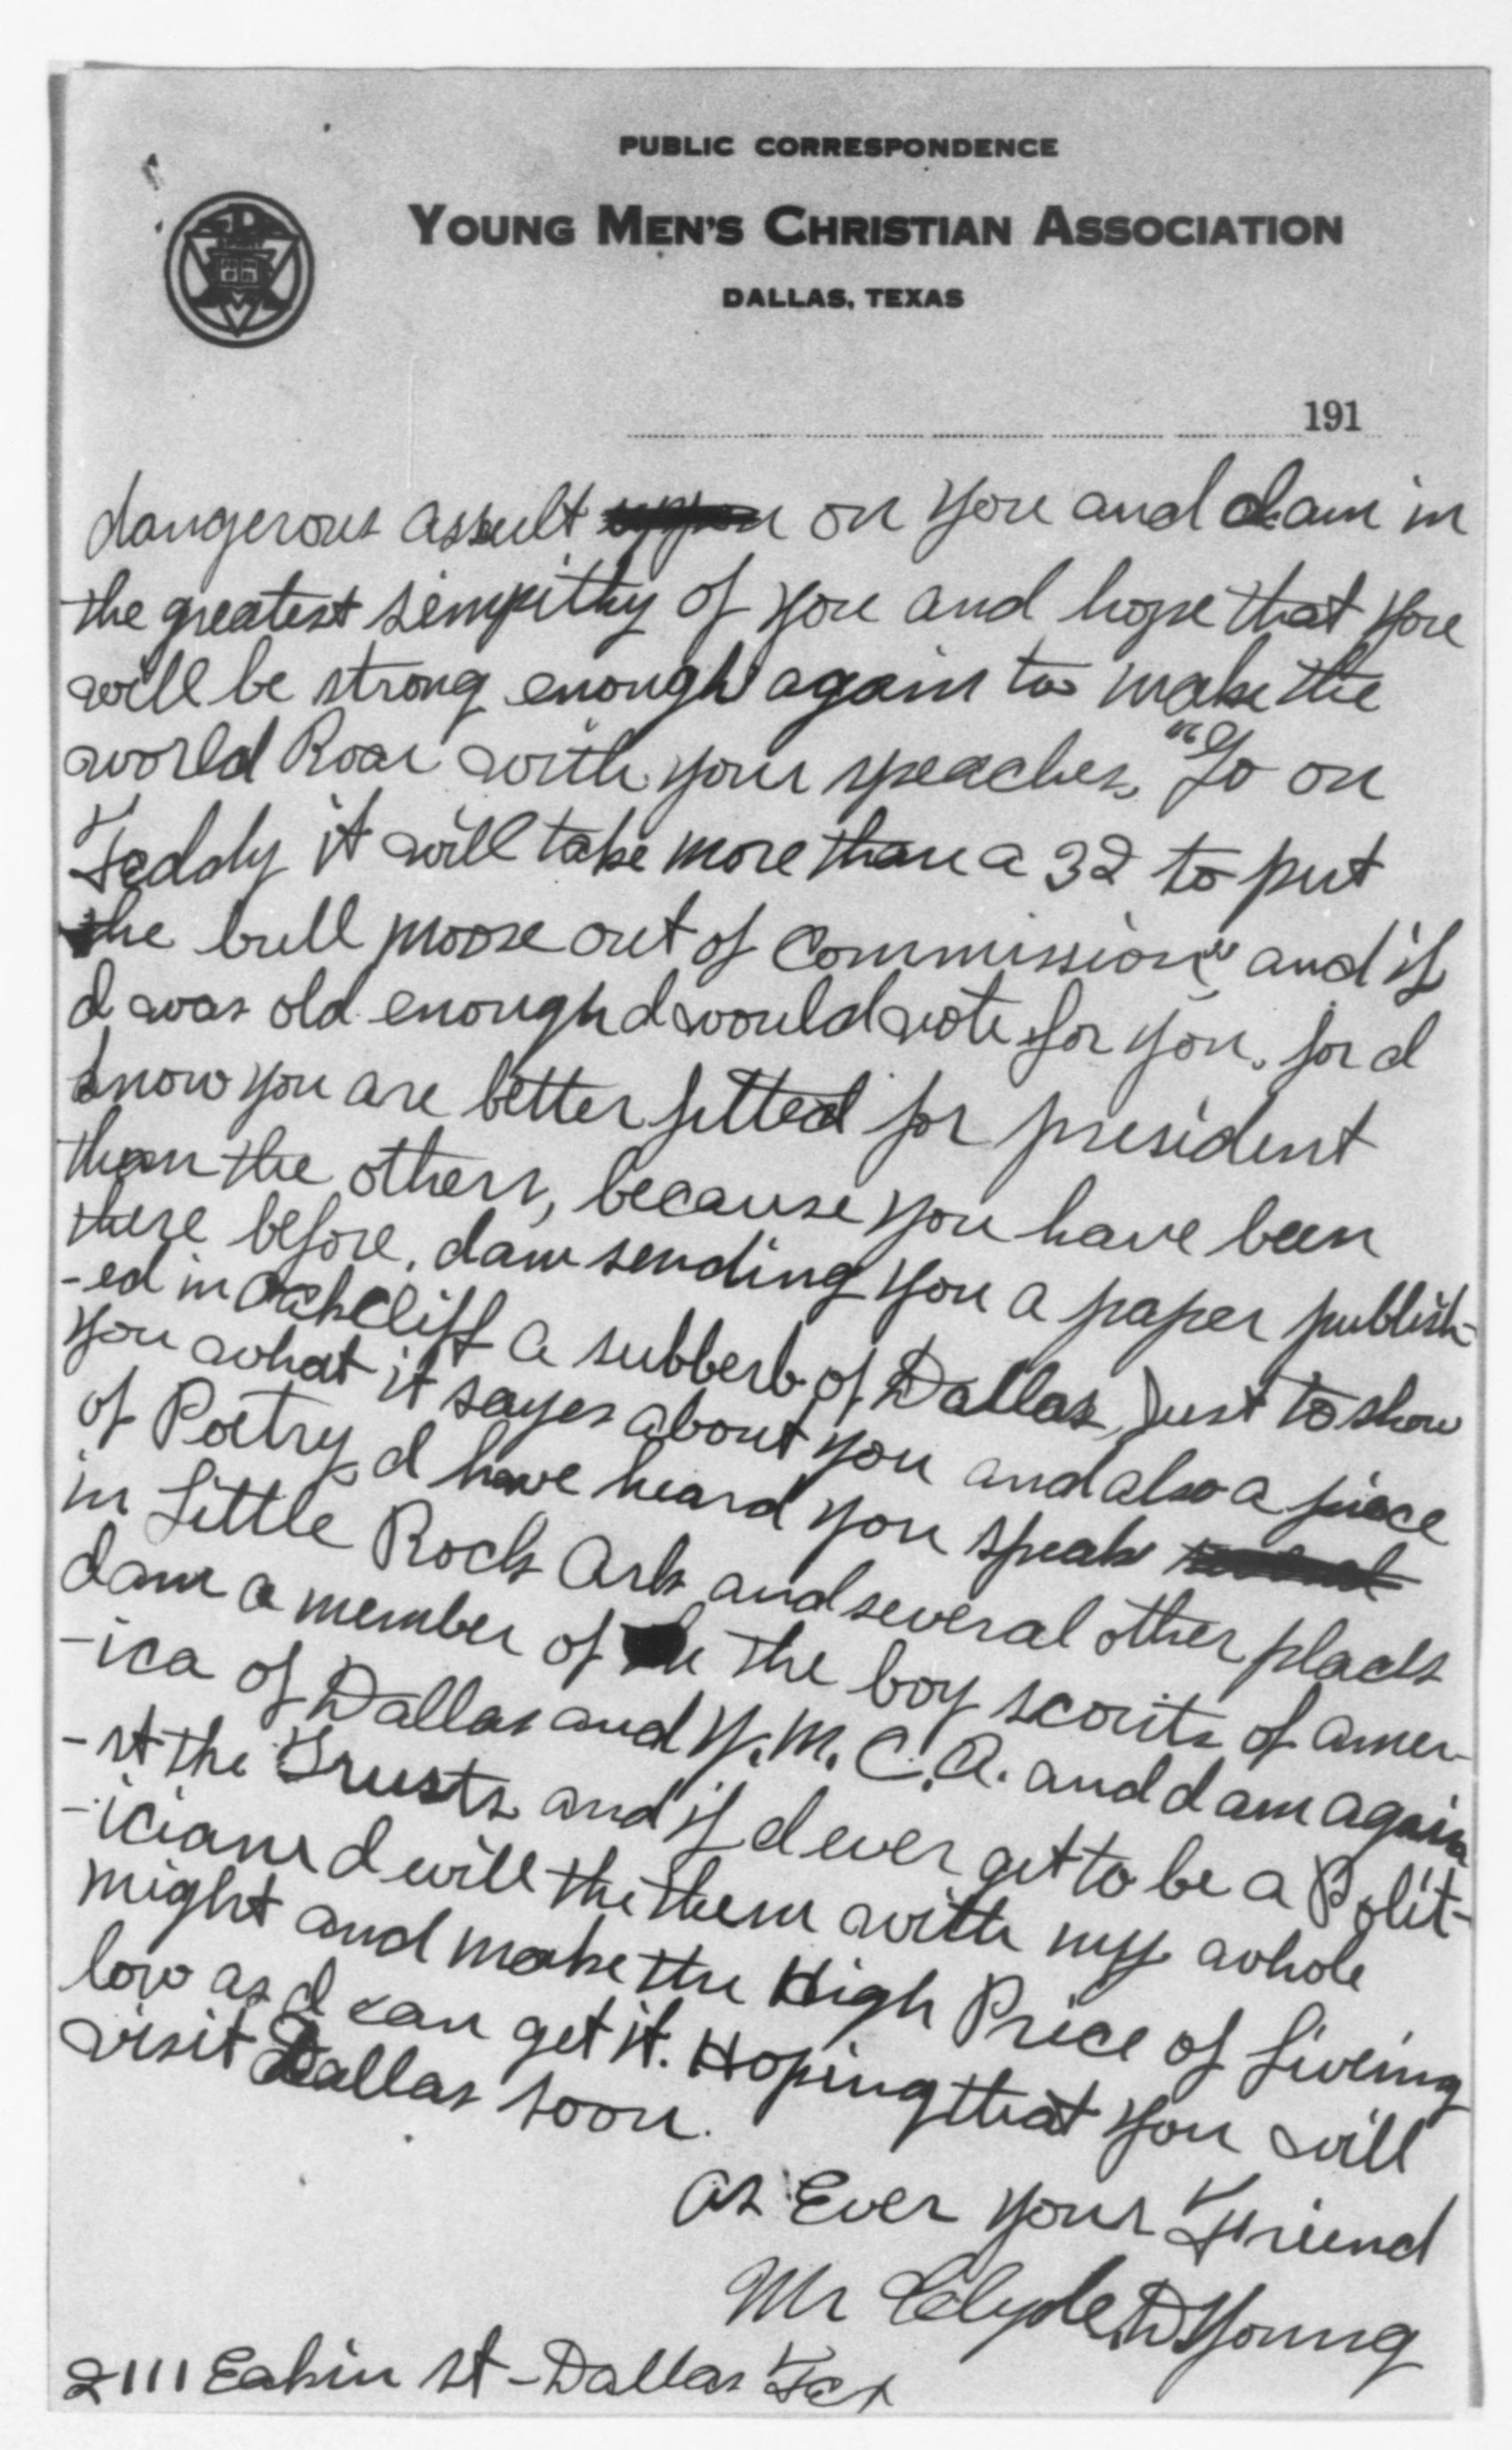 PUBLIC CORRESPONDENCE
YOUNG MEN'S CHRISTIAN ASSOCIATION
DALLAS, TEXAS
191
dangerous assult on you and I am in
the greatest simpithy of you and hope that you
will be strong enough again to make the
world Roar with your speaches, "Go on
Teddy it will take more than a 32 to put
the bull moose out of commission" and if
I was old enough I would vote for you, for I
know you are better fitted for president
than the others, because you have been
there before. I am sending you a paper publish-
-ed in Oakcliff a subberb of Dallas, Just to show
you what it sayes about you and also a piece
of Poetry, I have heard you speak
in Little Rock Ark and several other places
I am a member of the boy scouts of amer-
-ica of Dallas and Y.M.C.A. and I am again
-st the Trusts and if I ever get to be a Polit-
-icians I will the them with my whole
might and make the High Price of Liveing
low as I can get it. Hoping that you will
visit Dallas soon.
As Ever your Friend
Mr Clyde D Young
2111 Eakin St - Dallas Tex